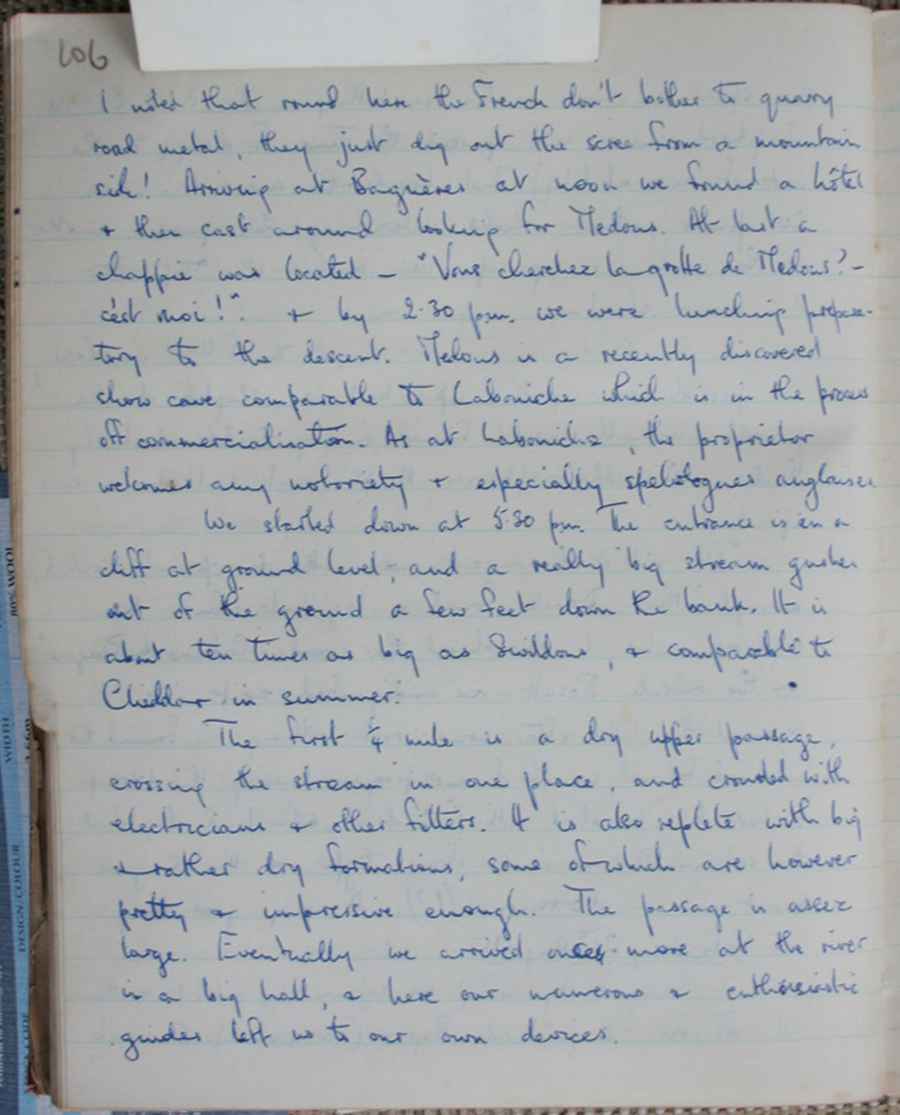 106
I noted that round here the French don't bother to quarry
road metal, they just dig out the scree from a mountain
side! Arriving at Bagnères at noon we found a hôtel
& then cast around looking for Medous. At last a
chappie was located - "Vous cherchez la grotte de Medous? -
c'est moi!". & by 2.30 p.m. we were lunching prepara-
tory to the descent. Medous is a recently discovered
show cave comparable to Labouiche which is in the process
off commercialisation. As at Labouiche, the proprietor
welcomes any notoriety & especially speleogues anglaises
We started down at 5.30 p.m. The entrance is in a
cliff at ground level, and a really big stream gushes
out of the ground a few feet down the bank. It is
about ten times as big as Swildons, & comparable to
Cheddar in summer.
The first ¼ mile is a dry upper passage,
crossing the stream in one place, and crowded with
electricians & other fitters. It is also replete with big
& rather dry formations, some of which are however
pretty & impressive enough. The passage is assez
large. Eventually we arrived once more at the river
in a big hall, & here our numerous & enthusiastic
guides left us to our own devices.
80% WOOL
WIDTH
DESIGN/COLOUR